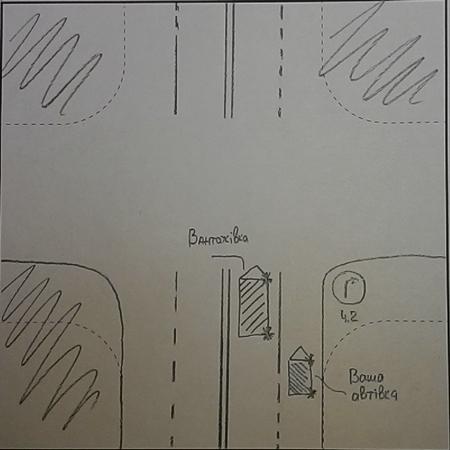 Вантажівка
4.2
Ваша
автівка